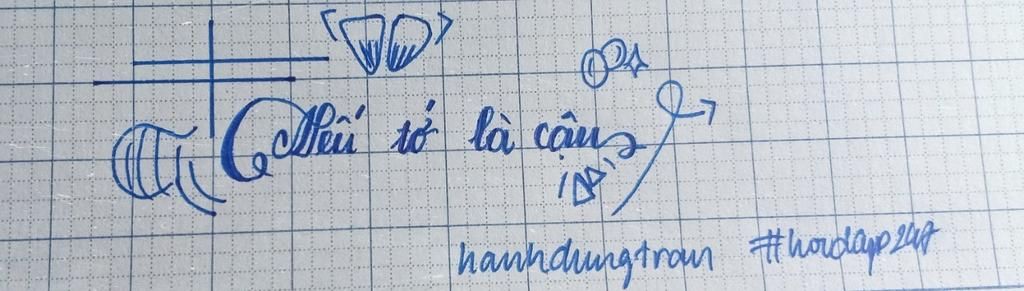 Nếu tớ là cậu
hanhdungtran #hoidap247